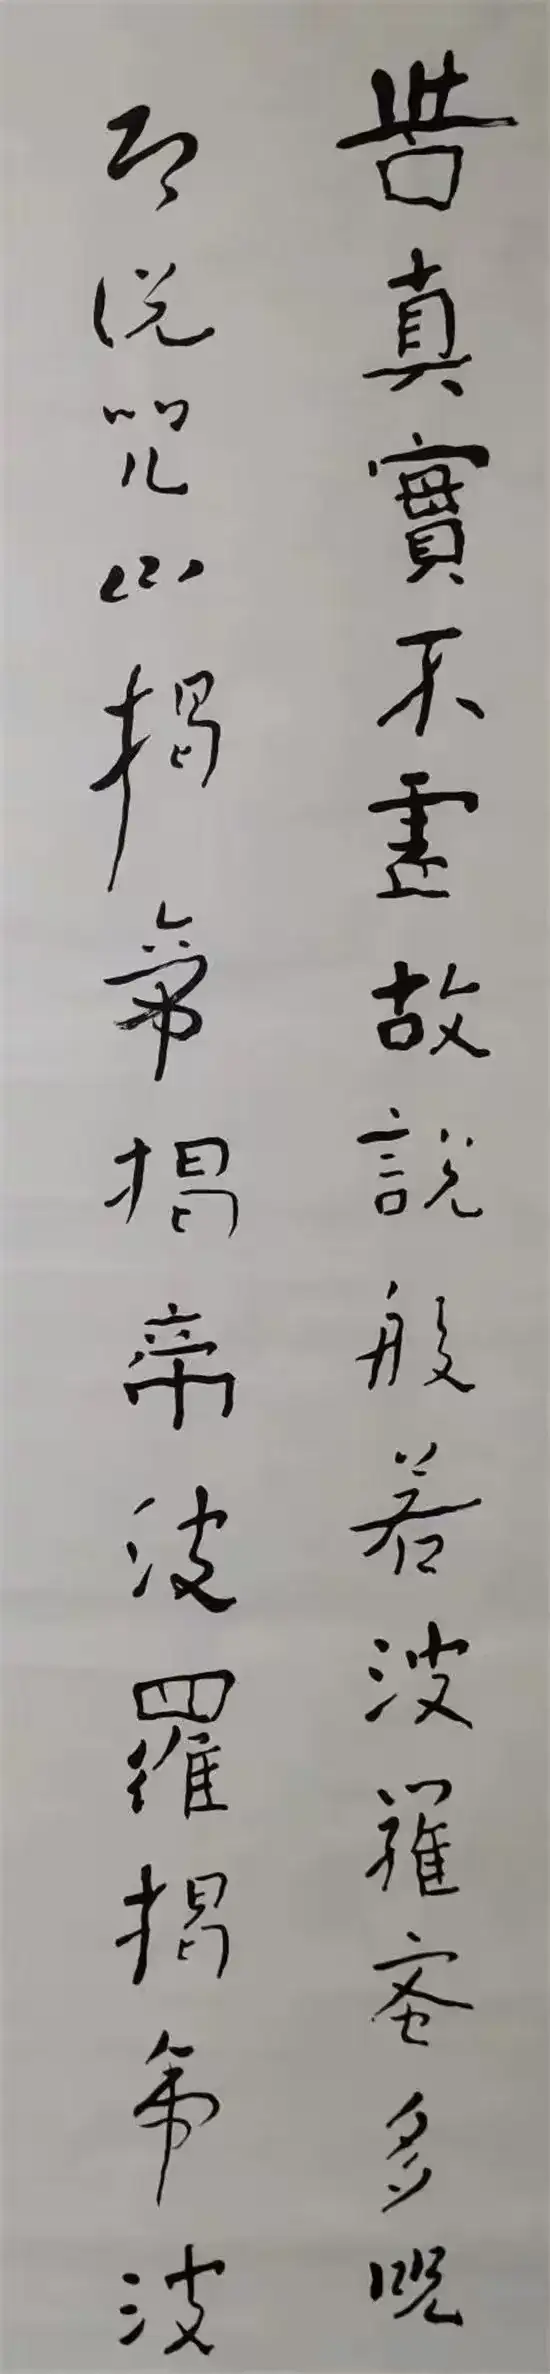 苦真實不虛故說般若波羅蜜多呪
即說呪曰揭帝揭帝波羅揭帝波